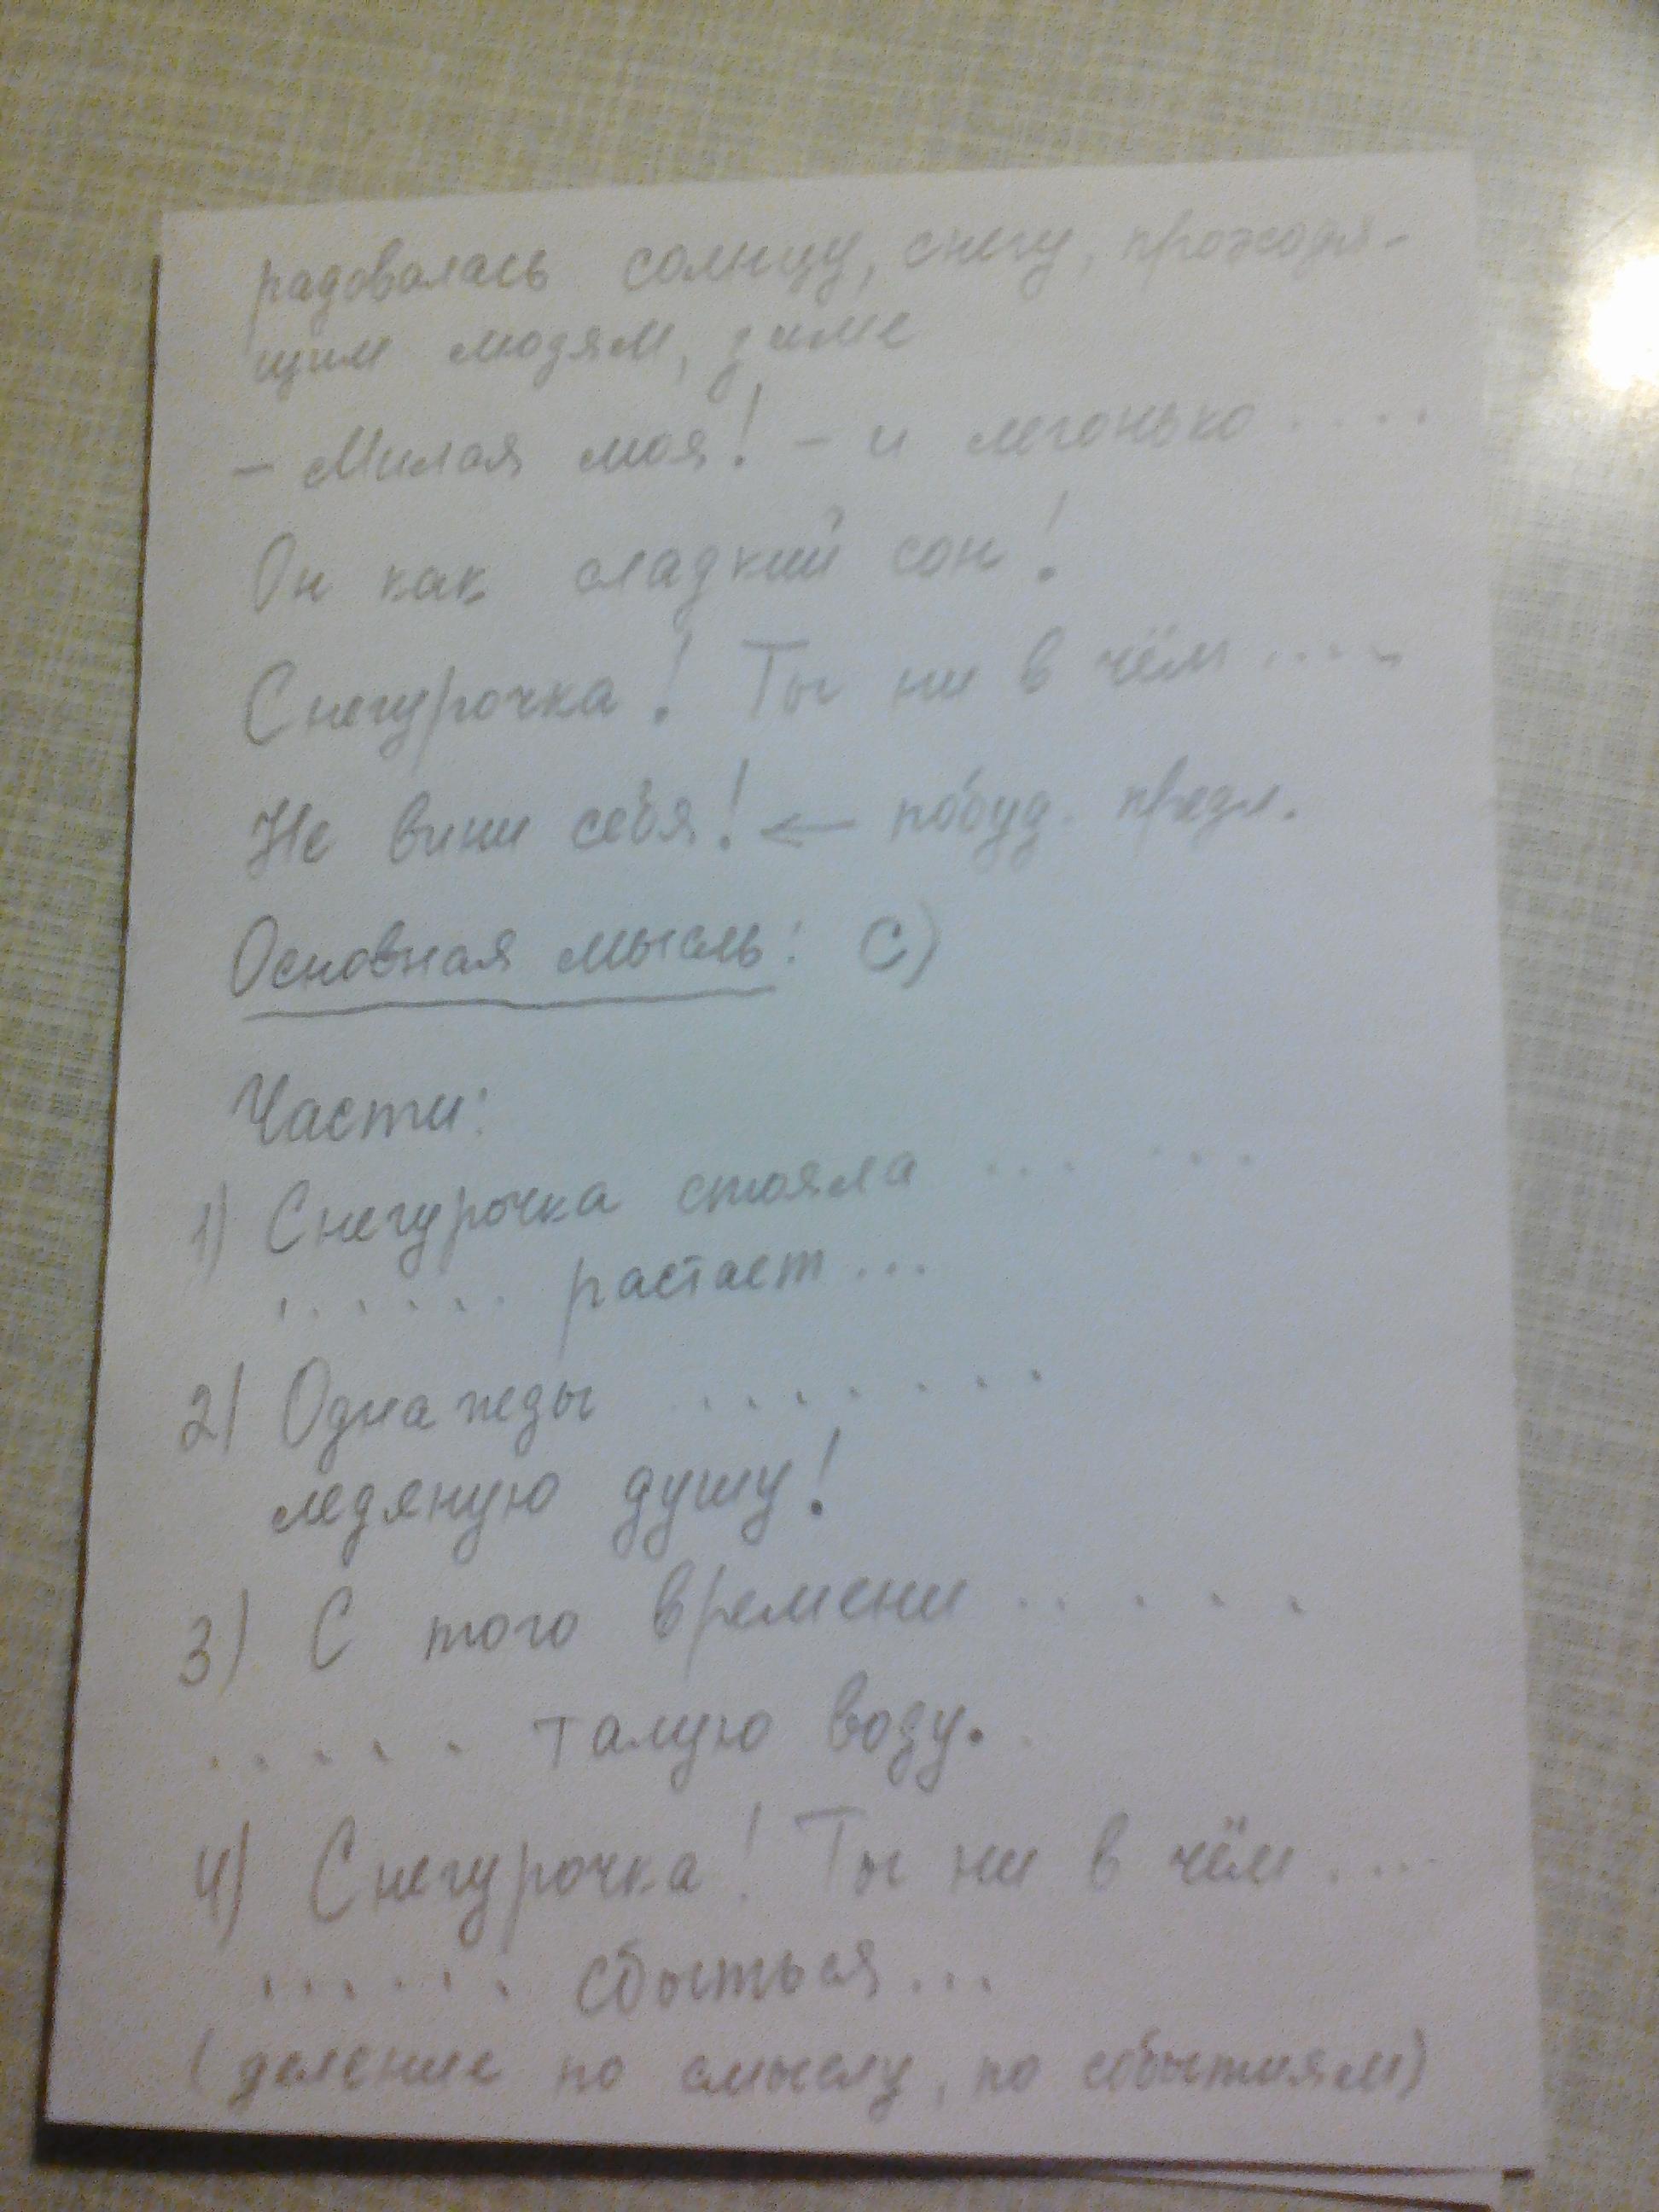 радовалась солнцу, снегу, проходя-
щим людям, зиме
– Милая моя! – и легонько . . . .
Он как сладкий сон!
Снегурочка! Ты ни в чём . . . .
Не вини себя! ← побуд. предл.
Основная мысль: С)
Части:
1) Снегурочка стояла . . . . . .
. . . . . . растает . . .
2) Однажды . . . . . . . .
ледяную душу!
3) С того времени . . . . .
. . . . . талую воду.
4) Снегурочка! Ты ни в чём . . . .
. . . . . . сбыться . . .
(деление по смыслу, по событиям)